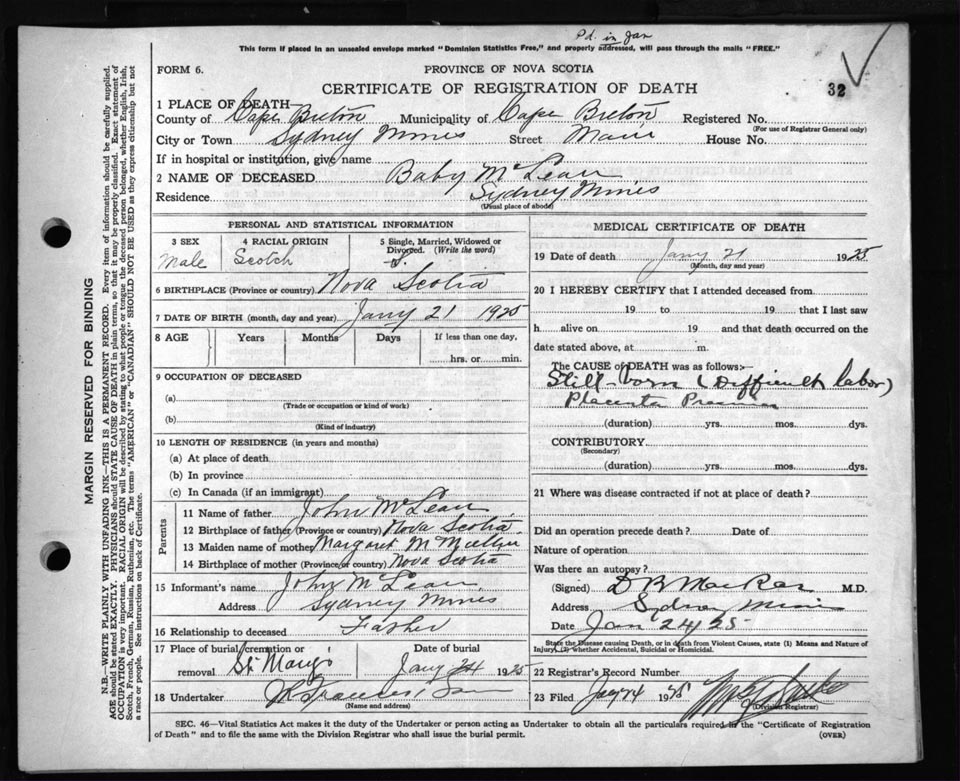 Pd. in Jan
This form if placed in an unsealed envelope marked "Dominion Statistics Free," and properly addressed, will pass through the mails "FREE."
FORM 6.
PROVINCE OF NOVA SCOTIA
CERTIFICATE OF REGISTRATION OF DEATH
32
1 PLACE OF DEATH—
County of Cape Breton Municipality of Cape Breton Registered No.
(For use of Registrar General only)
City or Town Sydney Mines Street Main House No.
If in hospital or institution, give name
2 NAME OF DECEASED Baby McLean
Residence Sydney Mines
(Usual place of abode)
MARGIN RESERVED FOR BINDING
N.B.—WRITE PLAINLY WITH UNFADING INK—THIS IS A PERMANENT RECORD. Every item of information should be carefully supplied.
AGE should be stated EXACTLY. PHYSICIANS should STATE CAUSE OF DEATH in plain terms, so that it may be properly classified. Exact statement of
OCCUPATION is very important. RACIAL ORIGIN will be described by stating to what people or tongue the deceased person belonged, whether English, Irish,
Scotch, French, German, Russian, Ruthenian, etc. The terms "AMERICAN" or "CANADIAN" SHOULD NOT BE USED as they express citizenship but not
a race or people. See instructions on back of Certificate.
PERSONAL AND STATISTICAL INFORMATION
3 SEX
Male
4 RACIAL ORIGIN
Scotch
5 Single, Married, Widowed or
Divorced. (Write the word)
S.
6 BIRTHPLACE (Province or country) Nova Scotia
7 DATE OF BIRTH (month, day and year) Jany 21 1925
8 AGE Years Months Days If less than one day,
hrs. or min.
9 OCCUPATION OF DECEASED
(a)
(Trade or occupation or kind of work)
(b)
(Kind of industry)
10 LENGTH OF RESIDENCE (in years and months)
(a) At place of death
(b) In province
(c) In Canada (if an immigrant)
Parents
11 Name of father John McLean
12 Birthplace of father (Province or country) Nova Scotia
13 Maiden name of mother Margaret
14 Birthplace of mother (Province or country) Nova Scotia
15 Informant's name John McLean
Address Sydney Mines
16 Relationship to deceased Father
17 Place of burial, cremation or
removal
Date of burial
Jany 24 1925
18 Undertaker
(Name and address)
MEDICAL CERTIFICATE OF DEATH
19 Date of death Jany 21 1925
(Month, day and year)
20 I HEREBY CERTIFY that I attended deceased from
19 to 19 that I last saw
h alive on 19 and that death occurred on the
date stated above, at m.
The CAUSE OF DEATH was as follows:—
Still-born (Difficult labor)
Placenta
(duration) yrs. mos. dys.
CONTRIBUTORY
(Secondary)
(duration) yrs. mos. dys.
21 Where was disease contracted if not at place of death?
Did an operation precede death? Date of
Nature of operation
Was there an autopsy?
(Signed) D B MacRae M.D.
Address Sydney Mines
Date Jan 24/25
State the Disease causing Death, or in death from Violent Causes, state (1) Means and Nature of
Injury, (2) whether Accidental, Suicidal or Homicidal.
22 Registrar's Record Number
23 Filed Jany 24 1925
(Division Registrar)
SEC. 46—Vital Statistics Act makes it the duty of the Undertaker or person acting as Undertaker to obtain all the particulars required in the "Certificate of Registration
of Death" and to file the same with the Division Registrar who shall issue the burial permit.
(OVER)